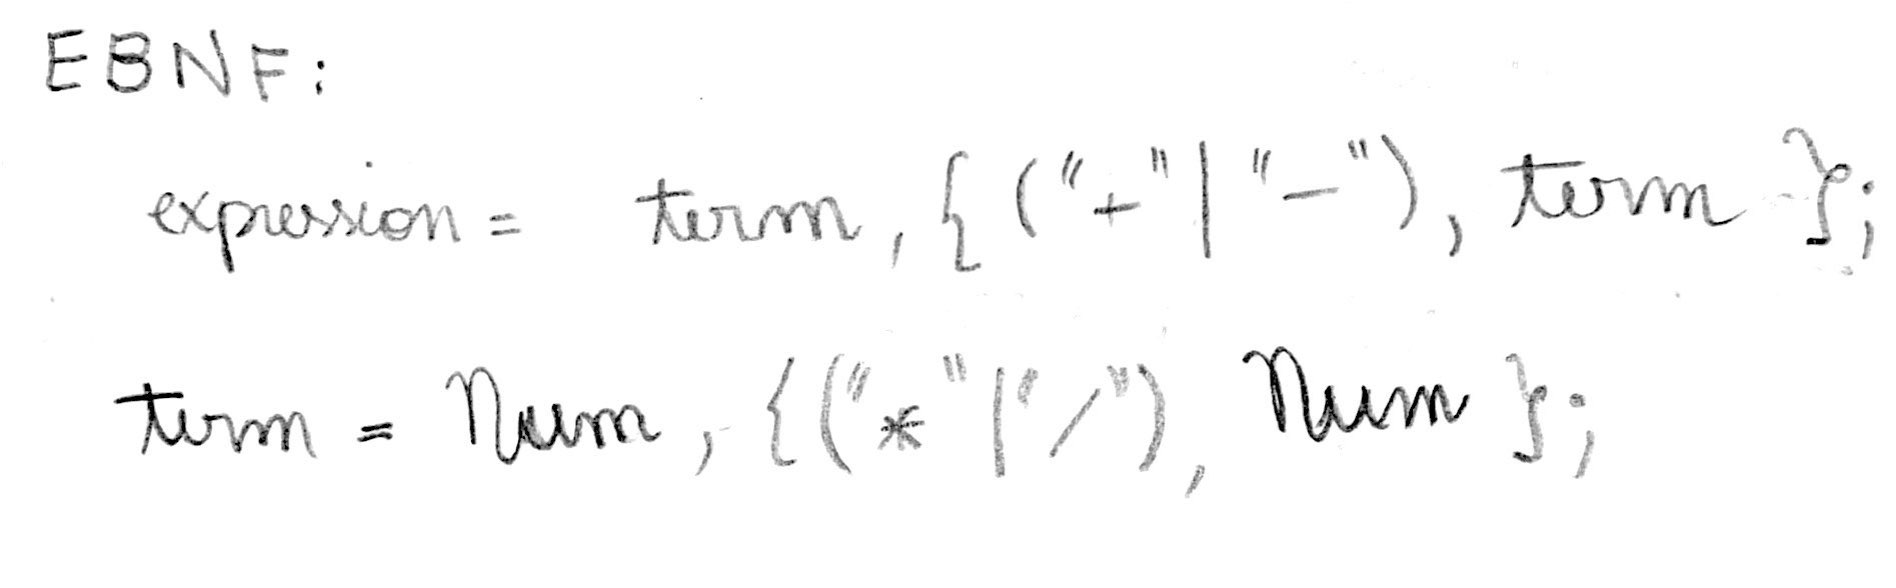 EBNF:
expression = term, { ("+" | "-"), term };
term = Num, { ("*" | "/"), Num };